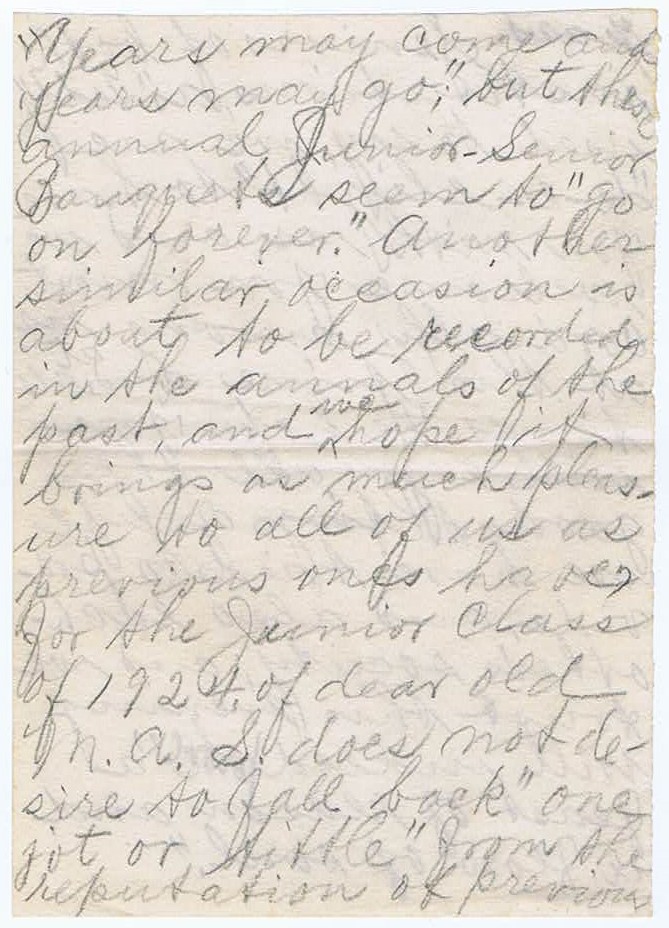 "Years may come and
years may go," but these
annual Junior-Senior
Banquets seem to "go
on forever." Another
similar occasion is
about to be recorded
in the annals of the
past, and we hope it
brings as much pleas-
ure to all of us as
previous ones have,
for the Junior Class
of 1924, of dear old
M. A. S. does not de-
sire to fall back "one
jot or tittle" from the
reputation of previous